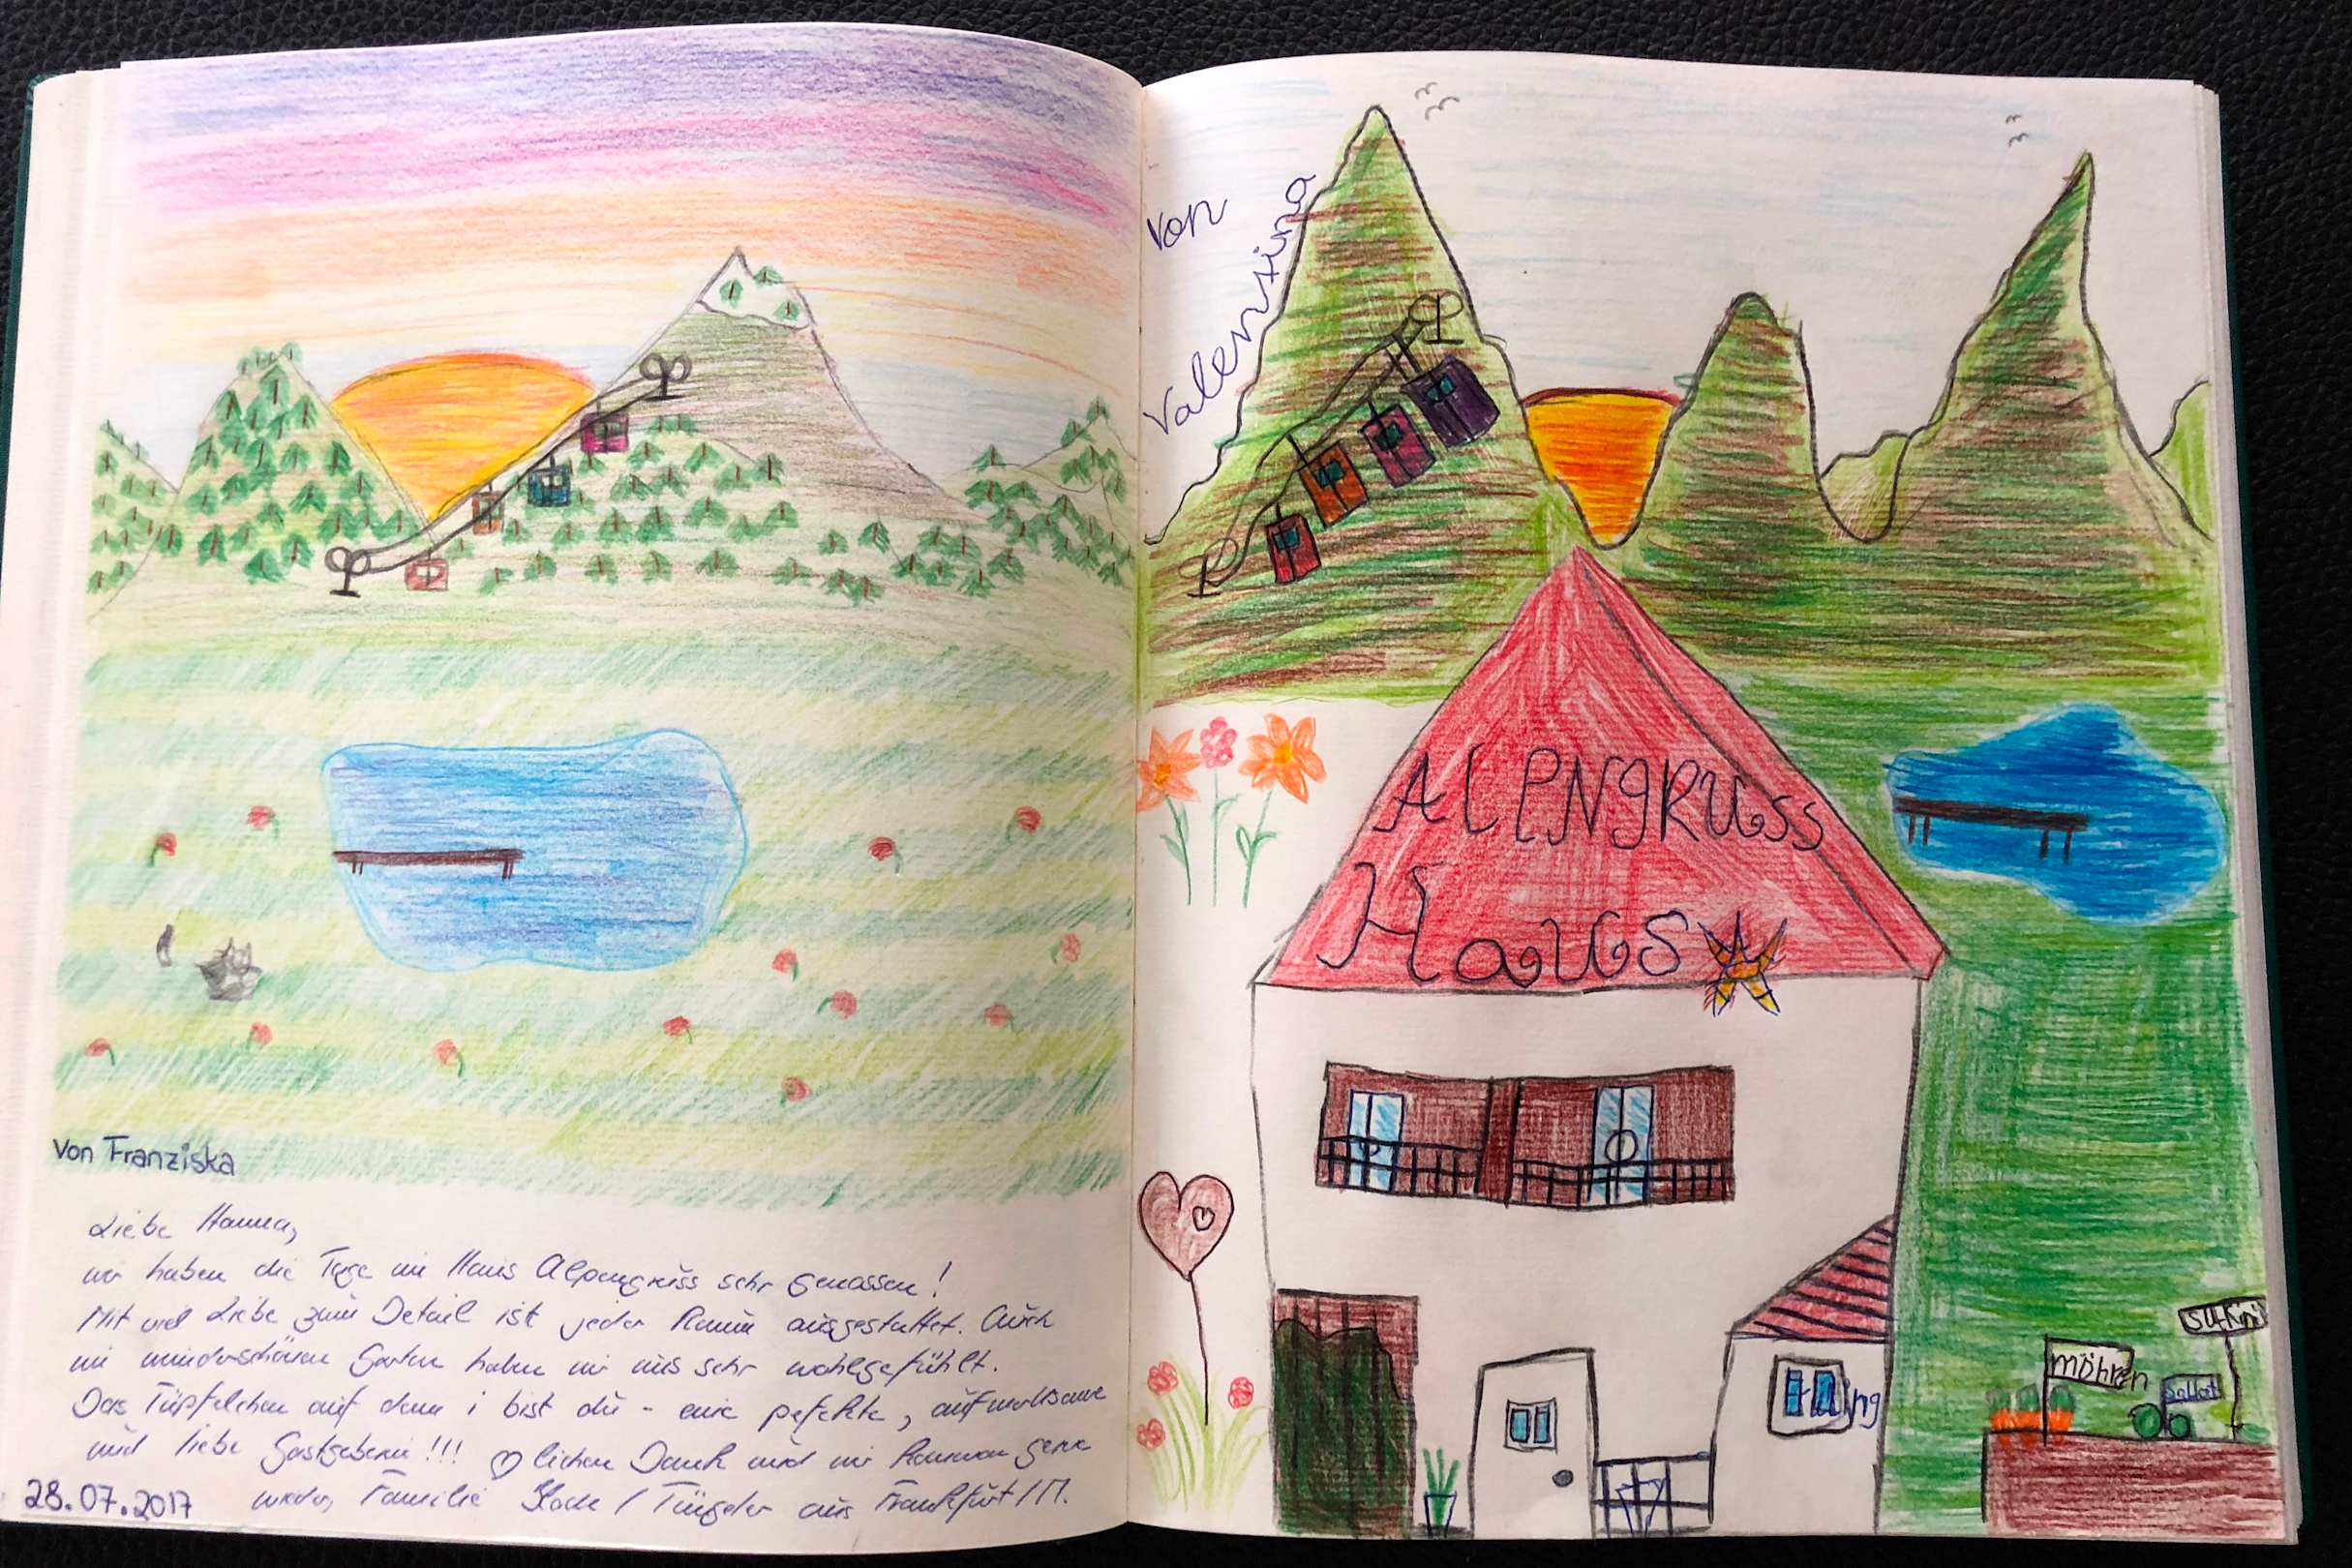 Von Franziska
Liebe Hanna,
wir haben die Tage im Haus Alpengruss sehr genossen!
Mit viel Liebe zum Detail ist jeder Raum ausgestattet. Auch
im wunderschönen Garten haben wir uns sehr wohlgefühlt.
Das Tüpfelchen auf dem i bist du - eine pefekte, aufmerksame
und liebe Gastgeberin!!! ♡lichen Dank und wir kommen gerne
28.07.2017 wieder, Familie / aus Frankfurt/M.
Von
Valensina
ALPENgRUss
HaUS
möhren
Sallat